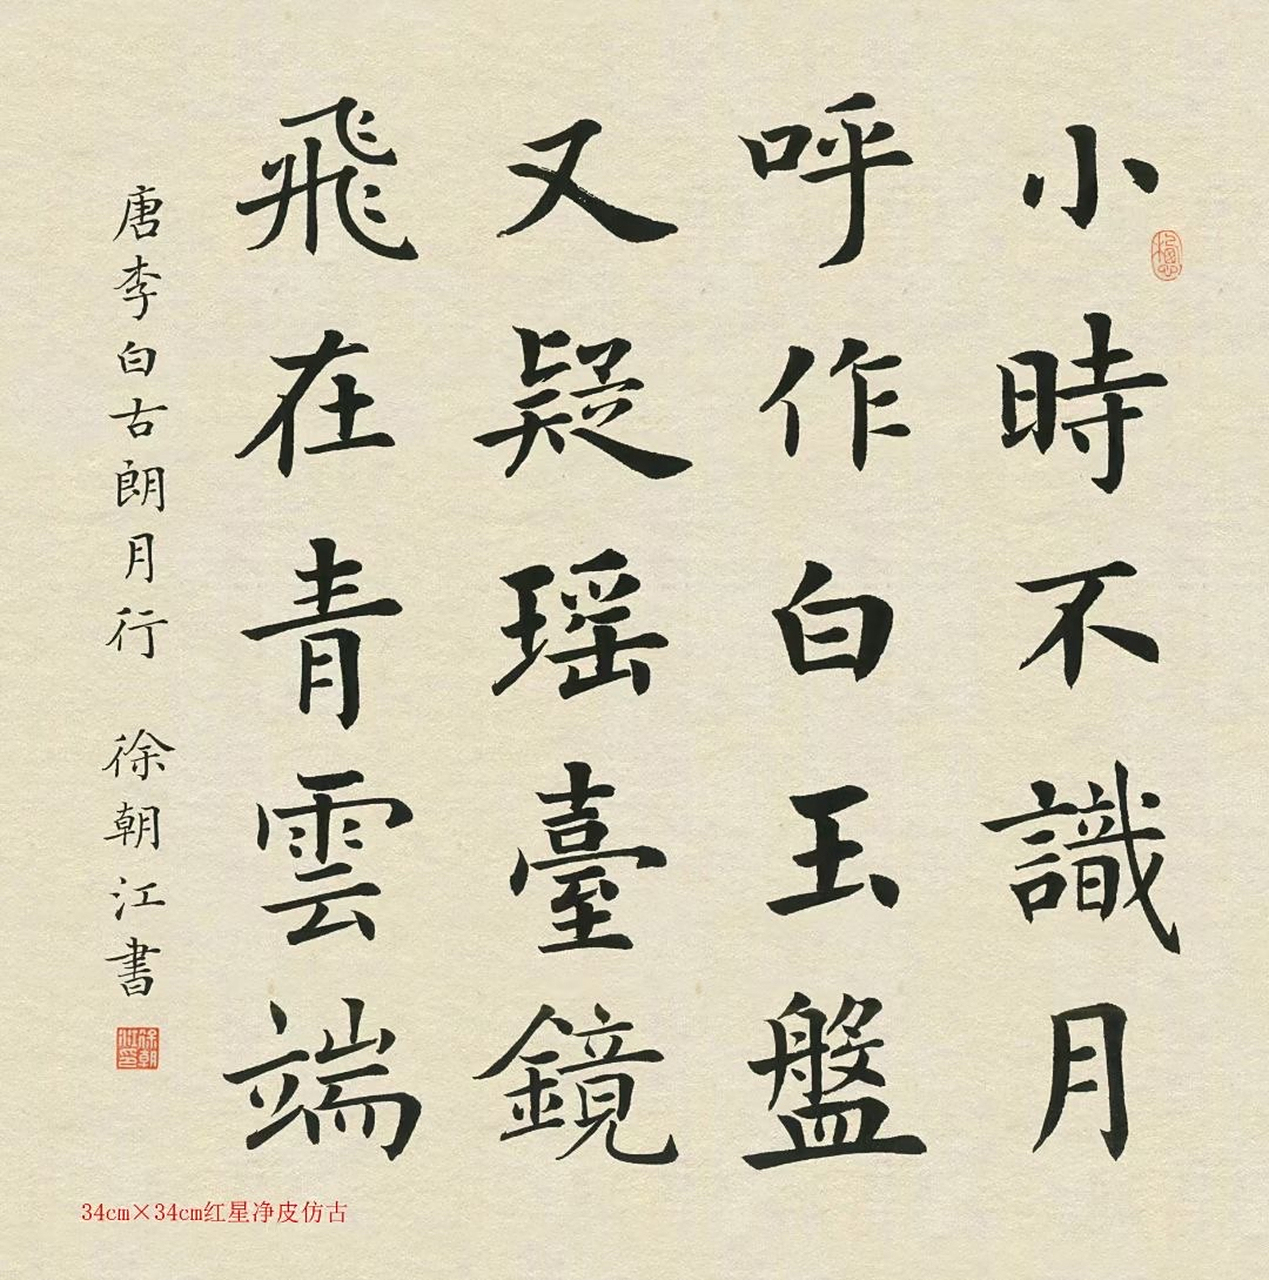 小時不識月
呼作白玉盤
又疑瑶臺鏡
飛在青雲端
唐李白古朗月行 徐朝江書
徐朝江印
34cm×34cm红星净皮仿古